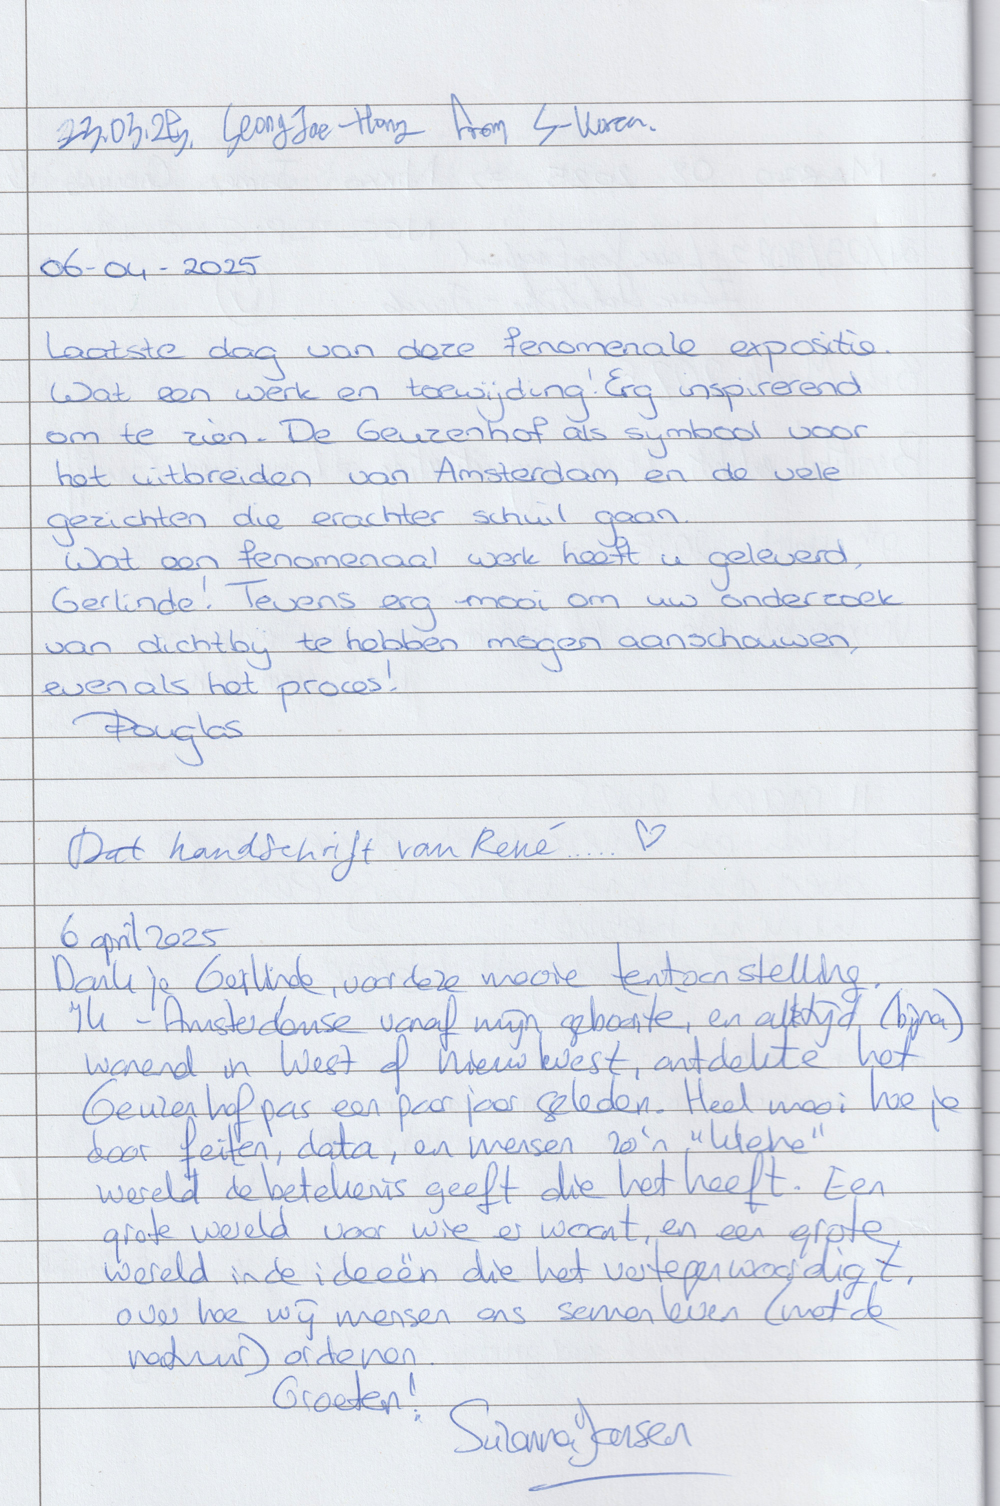 23.03.25, SeongJae-Hong from S-Korea.
06-04-2025
Laatste dag van deze fenomenale expositie.
Wat een werk en toewijding! Erg inspirerend
om te zien. De Geuzenhof als symbool voor
het uitbreiden van Amsterdam en de vele
gezichten die erachter schuil gaan.
Wat een fenomenaal werk heeft u geleverd,
Gerlinde! Tevens erg mooi om uw onderzoek
van dichtbij te hebben mogen aanschouwen,
evenals het proces!
Douglas
Dat handschrift van René..... ♡
6 april 2025
Dank je Gerlinde, voor deze mooie tentoonstelling.
Ik - Amsterdamse vanaf mijn geboorte, en altijd (bijna)
wonend in West of Nieuw West, ontdekte het
Geuzenhof pas een paar jaar geleden. Heel mooi hoe je
door feiten, data, en mensen zo'n "kleine"
wereld de betekenis geeft die het heeft. Een
grote wereld voor wie er woont, en een grote
wereld in de ideeën die het vertegenwoordigt,
over hoe wij mensen ons samenleven (met de
natuur) ordenen.
Groeten!
Suzanna Jansen